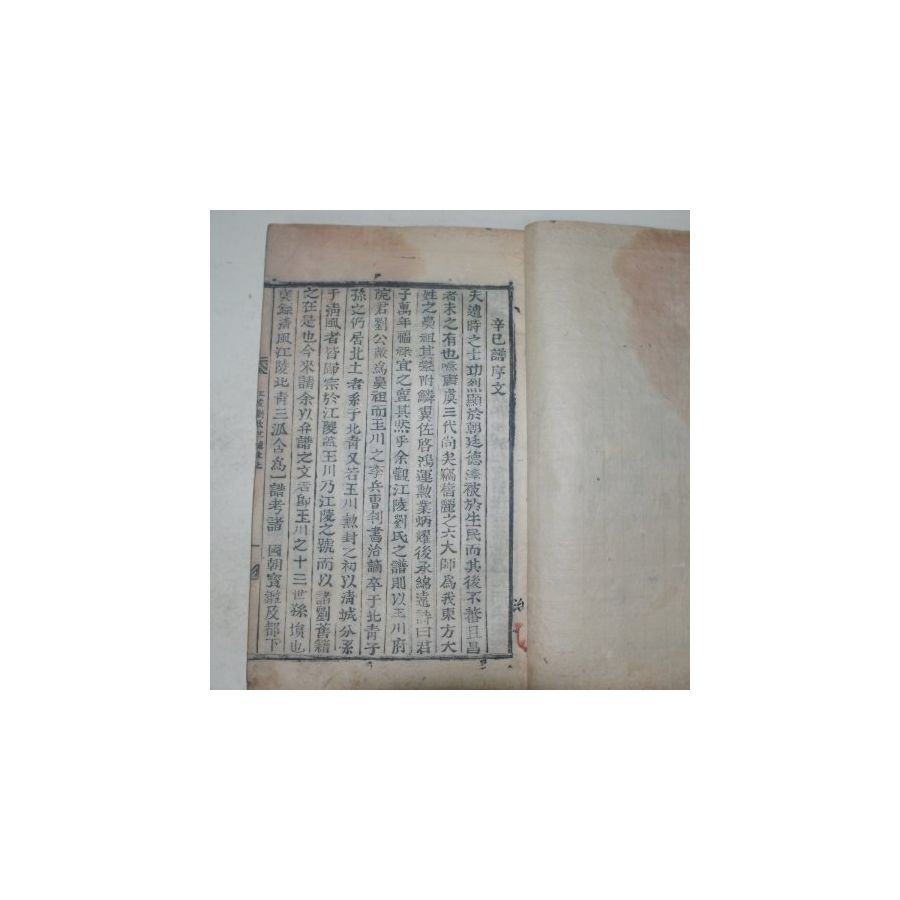 辛巳譜序文
夫遭時之士功烈顯於朝廷德澤被於生民而其後不蕃且昌
者未之有也唐虞三代尚矣竊稽麗之六大師爲我東方大
姓之鼻祖其攀附鱗翼佐啓鴻運勳業炳耀後承綿遠詩曰君
子萬年福祿宜之豈其然乎余觀江陵劉氏之譜則以玉川府
院君劉公敞爲鼻祖而玉川之季兵曹判書洽謫卒于北靑子
孫之仍居北土者系于北靑又若玉川勲封之初以淸城分系
于淸風者皆歸宗於江陵盖玉川乃江陵之號而以諸劉舊籍
之在是也今來請余以弁譜之文者卽玉川之十三世孫 也
實錄淸風江陵北靑三派合爲一譜考諸 國朝寶鑑及都下